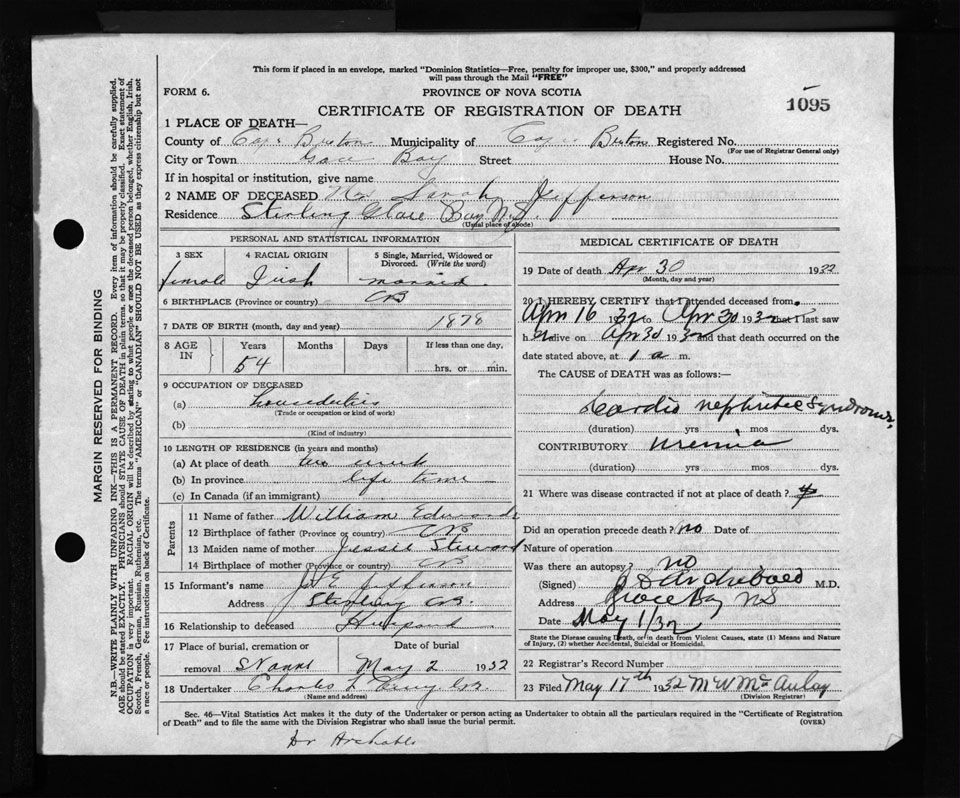 This form if placed in an envelope, marked "Dominion Statistics—Free, penalty for improper use, $300," and properly addressed
will pass through the Mail "FREE"
FORM 6.
PROVINCE OF NOVA SCOTIA
CERTIFICATE OF REGISTRATION OF DEATH
1095
1 PLACE OF DEATH—
County of Cape Breton Municipality of Cape Breton Registered No.
(For use of Registrar General only)
City or Town Glace Bay Street House No.
If in hospital or institution, give name
2 NAME OF DECEASED Mrs Sarah Jefferson
Residence Sterling Glace Bay N.S.
(Usual place of abode)
PERSONAL AND STATISTICAL INFORMATION
3 SEX 4 RACIAL ORIGIN 5 Single, Married, Widowed or
Divorced. (Write the word)
female Irish married
6 BIRTHPLACE (Province or country) CB
7 DATE OF BIRTH (month, day and year) 1878
8 AGE IN Years Months Days If less than one day,
54 hrs. or min.
9 OCCUPATION OF DECEASED
(a) houseduties
(Trade or occupation or kind of work)
(b)
(Kind of industry)
10 LENGTH OF RESIDENCE (in years and months)
(a) At place of death
(b) In province life time
(c) In Canada (if an immigrant)
Parents
11 Name of father William Edwards
12 Birthplace of father (Province or country) CB
13 Maiden name of mother Jessie Steward
14 Birthplace of mother (Province or country) CB
15 Informant's name J.E Jefferson
Address Sterling CB.
16 Relationship to deceased Husband
17 Place of burial, cremation or Date of burial
removal May 2 1932
18 Undertaker Charles
(Name and address)
MEDICAL CERTIFICATE OF DEATH
19 Date of death Apr 30 1932
(Month, day and year)
20 I HEREBY CERTIFY that I attended deceased from
Apri 16 1932 to Apr 30 1932 that I last saw
h er alive on Apr 30 1932 and that death occurred on the
date stated above, at 1 a m.
The CAUSE OF DEATH was as follows:—
Cardio nephritic Syndrome.
(duration) yrs mos dys.
CONTRIBUTORY uremia
(duration) yrs mos dys.
21 Where was disease contracted if not at place of death?
Did an operation precede death? no Date of
Nature of operation
Was there an autopsy? no
(Signed) Archibald M.D.
Address Glace Bay NS
Date May 1/32
State the Disease causing Death, or in death from Violent Causes, state (1) Means and Nature
of Injury, (2) Whether Accidental, Suicidal or Homicidal.
22 Registrar's Record Number
23 Filed May 17th 1932 M W McAulay
(Division Registrar)
Sec. 46—Vital Statistics Act makes it the duty of the Undertaker or person acting as Undertaker to obtain all the particulars required in the "Certificate of Registration
of Death" and to file the same with the Division Registrar who shall issue the burial permit.
(OVER)
Dr Archable
MARGIN RESERVED FOR BINDING
N.B.—WRITE PLAINLY WITH UNFADING INK—THIS IS A PERMANENT RECORD. Every item of information should be carefully supplied.
AGE should be stated EXACTLY. PHYSICIANS should STATE CAUSE OF DEATH in plain terms, so that it may be properly classified. Exact statement of
OCCUPATION is very important. RACIAL ORIGIN will be described by stating to what people or race the deceased person belonged, whether English, Irish,
Scotch, French, German, Russian, Ruthenian, etc. The terms "AMERICAN" or "CANADIAN" SHOULD NOT BE USED as they express citizenship but not
a race or people. See instructions on back of Certificate.